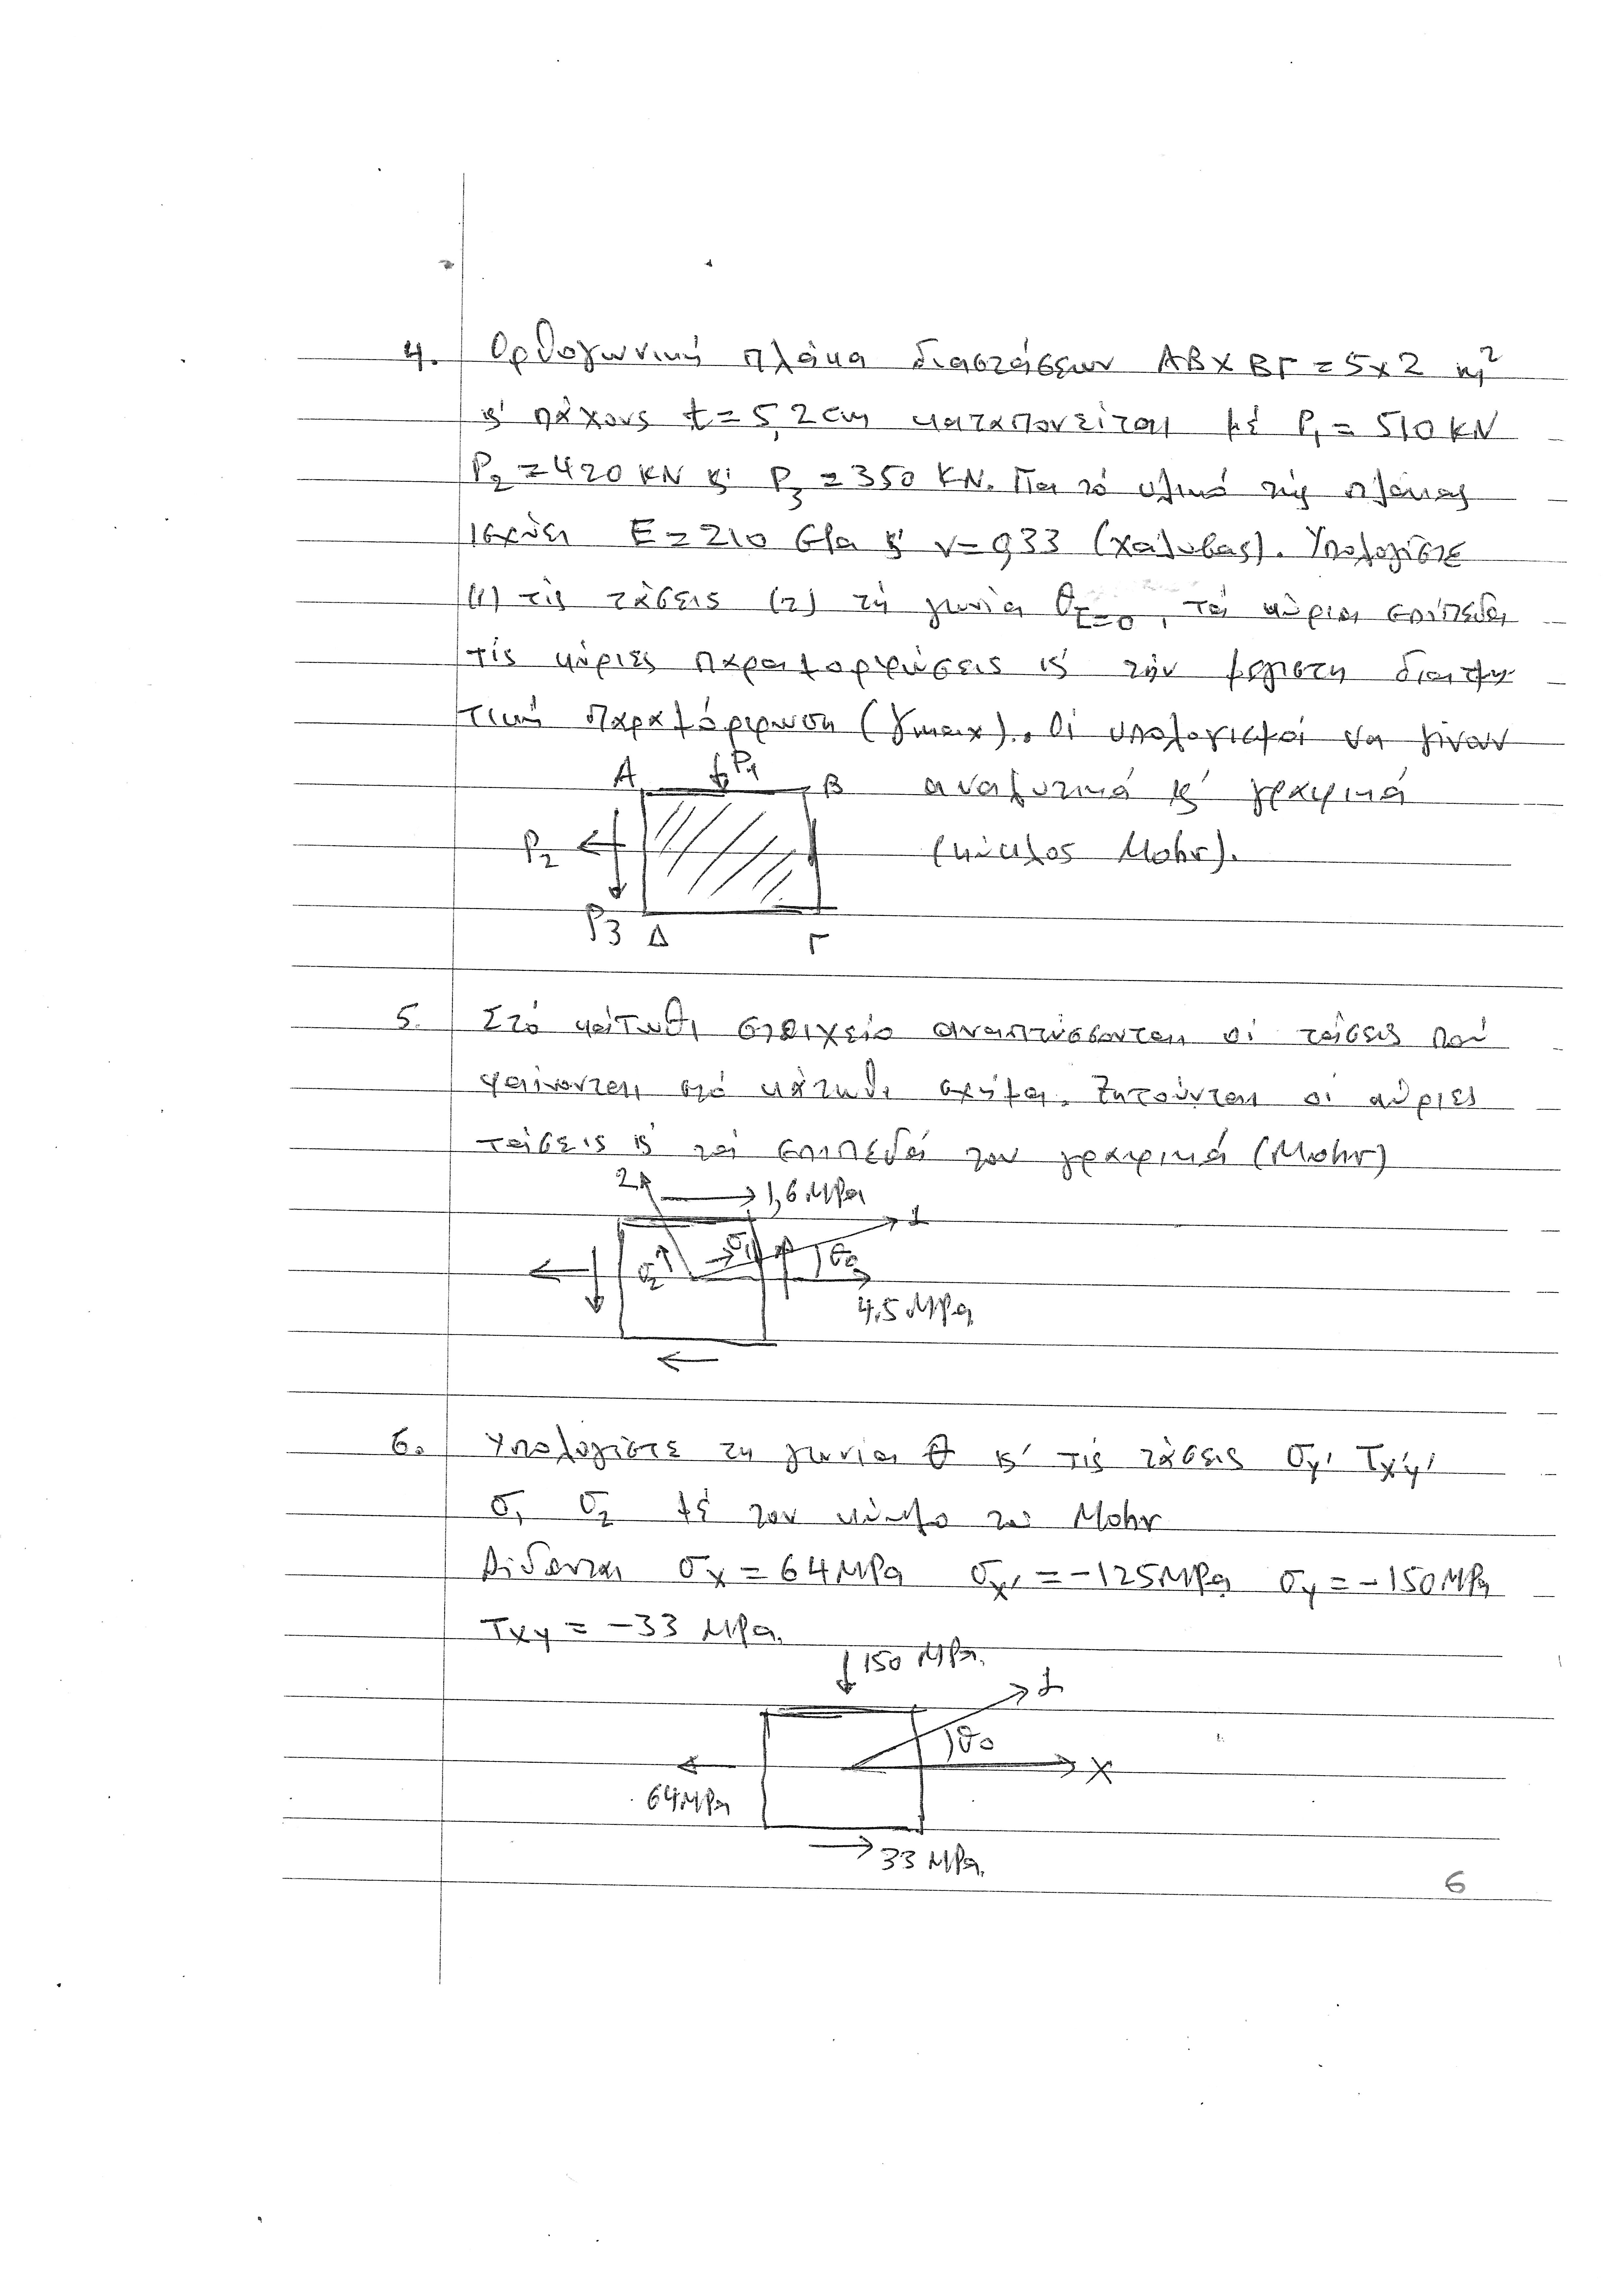 4. Ορθογωνική πλάκα διαστάσεων ΑΒ x ΒΓ = 5 x 2 m²
κ' πάχους t = 5,2 cm καταπονείται μέ P₁ = 510 KN
P₂ = 420 KN κ' P₃ = 350 KN. Για τό υλικό τής πλάκας
ισχύει E = 210 GPa κ' ν = 0,33 (χάλυβας). Υπολογίστε
(1) τις τάσεις (2) τή γωνία θτ=0, τά κύρια επίπεδα
τίς κύριες παραμορφώσεις κ' τήν μέγιστη διατμη
τική παραμόρφωση (γmax). Οί υπολογισμοί να γίνουν
A P₁ B αναλυτικά κ' γραφικά
P₂ (κύκλος Mohr).
P3 Δ Γ
5. Στό κάτωθι στοιχείο αναπτύσσονται οί τάσεις πού
φαίνονται στό κάτωθι σχήμα. Ζητούνται οι κύριες
τάσεις κ' τά επίπεδά των γραφικά (Mohr)
2 1,6 MPa
1
σ₂ σ₁ θ₀
4,5 MPa
6. Υπολογίστε τη γωνία θ κ' τίς τάσεις σy' τx'y'
σ₁ σ₂ μέ τον κύκλο τού Mohr
Δίδονται σx = 64 MPa σx' = -125 MPa σy = -150 MPa
τxy = -33 MPa.
150 MPa.
1
θ₀
x
64 MPa
33 MPa.
6